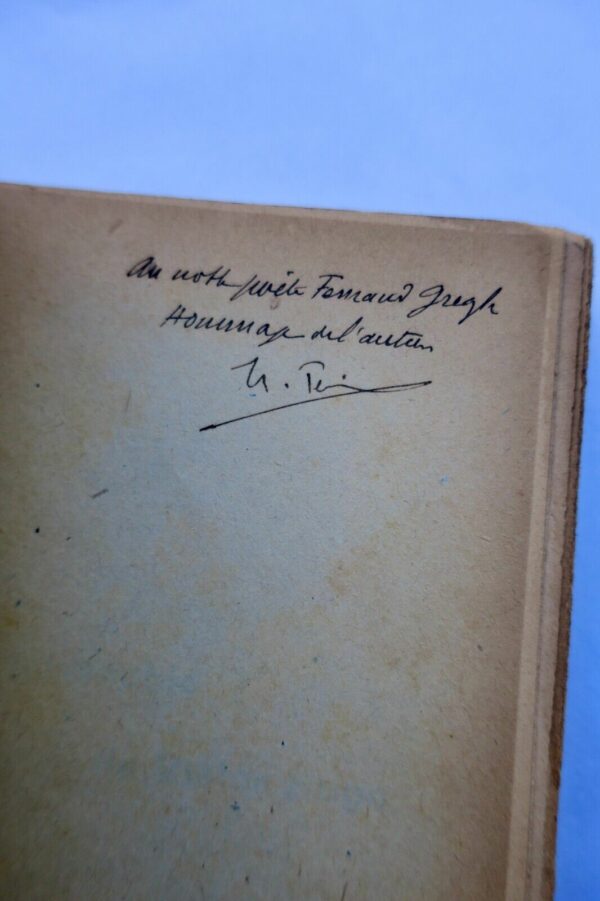 Au noble poète Fernand Gregh
Hommage de l'auteur